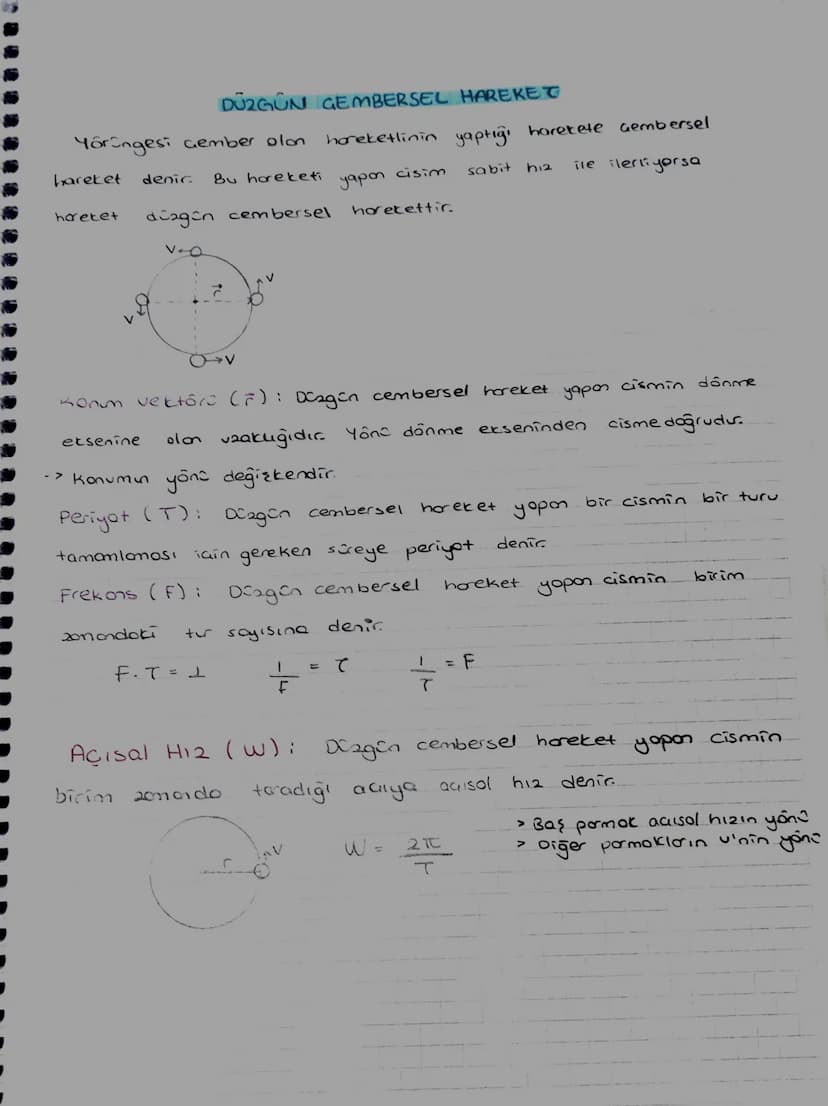 DÜZGÜN ÇEMBERSEL HAREKET
Yörüngesi çember olan hareketlinin yaptığı harekete çembersel
hareket denir. Bu hareketi yapan cisim sabit hız ile ilerliyorsa
hareket düzgün çembersel harekettir.
V
V
r
V
V
Konum vektörü (r): Düzgün çembersel hareket yapan cismin dönme
eksenine olan uzaklığıdır. Yönü dönme ekseninden cisme doğrudur.
-> Konumun yönü değişkendir.
Periyot (T): Düzgün çembersel hareket yapan bir cismin bir turu
tamamlaması için gereken süreye periyot denir.
Frekans (F): Düzgün çembersel hareket yapan cismin birim
zamandaki tur sayısına denir.
F.T = 1 1/F = T 1/T = F
Açısal Hız (W): Düzgün çembersel hareket yapan cismin
birim zamanda taradığı açıya açısal hız denir.
> Baş parmak açısal hızın yönü
> Diğer parmakların v'nin yönü
r V W = 2π/T